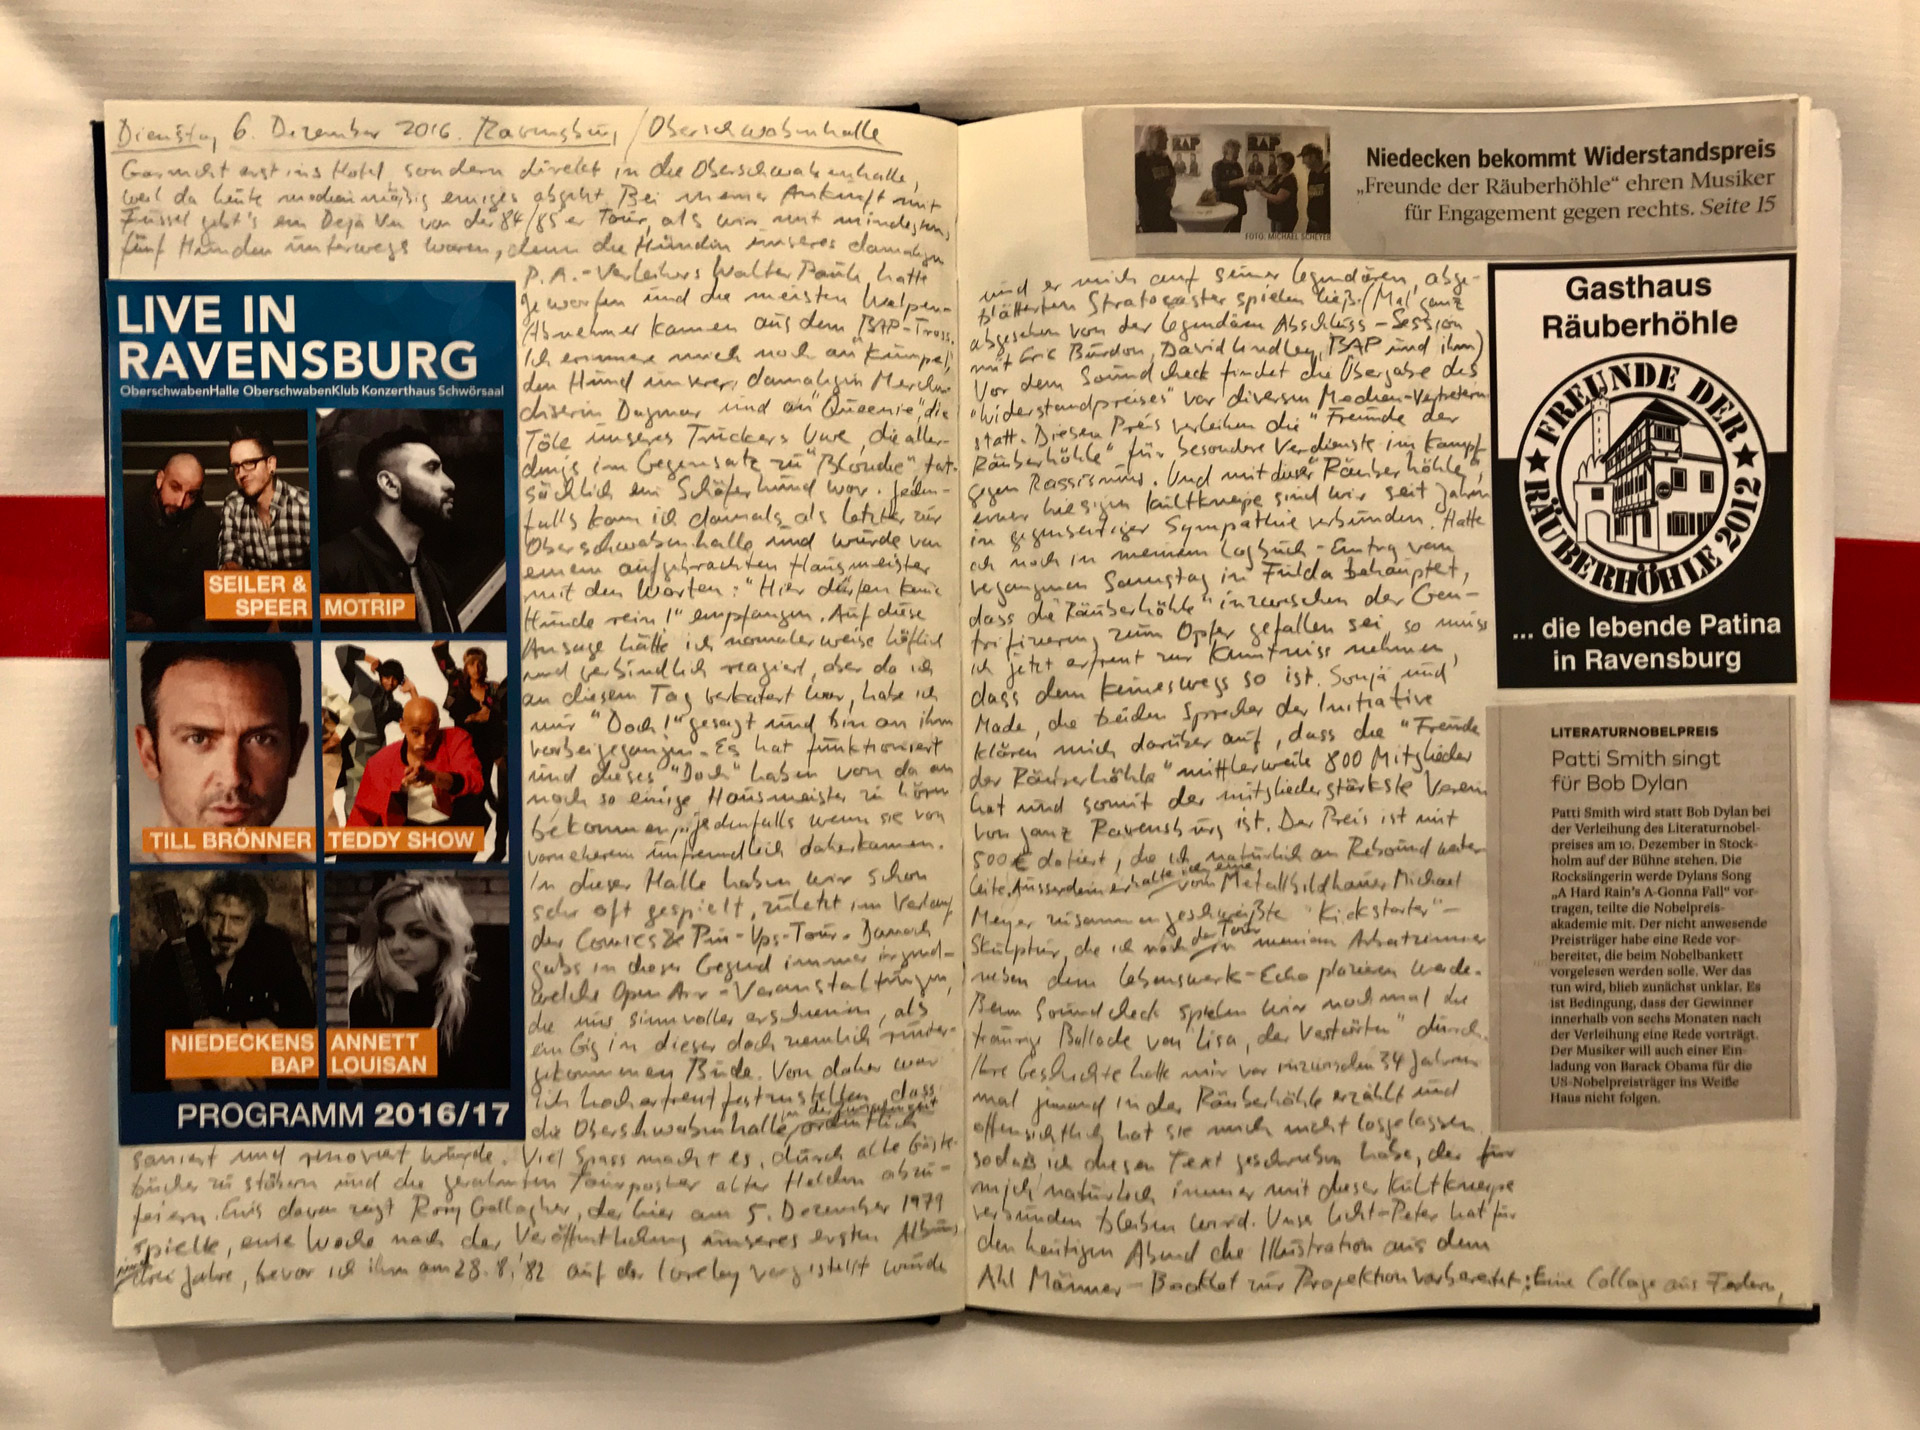 Dienstag 6. Dezember 2016. Ravensburg / Oberschwabenhalle
Gar nicht erst ins Hotel sondern direkt in die Oberschwabenhalle,
weil da heute medienmäßig einiges abgeht. Bei meiner Ankunft mit
Füssel gibt's ein Dejà Vu von der 84/85er Tour, als wir mit mindestens
fünf Hunden unterwegs waren, denn die Hündin unseres damaligen
P.A.-Verleihers Walter hatte
geworfen und die meisten Welpen-
Abnehmer kamen aus dem BAP-Tross.
Ich erinnere mich noch an "Kumpel",
den Hund unserer damaligen Merchan-
diserin Dagmar und an "Queenie", die
Töle unseres Truckers Uwe, die aller-
dings im Gegensatz zu "Blondie" tat-
sächlich ein Schäferhund war. Jeden-
falls kam ich damals als letzter zur
Oberschwabenhalle und wurde von
einem aufgebrachten Hausmeister
mit den Worten: "Hier dürfen keine
Hunde rein!" empfangen. Auf diese
Ansage hätte ich normalerweise höflich
und verbindlich reagiert, aber da ich
an diesem Tag verkatert war, habe ich
nur "Doch!" gesagt und bin an ihm
vorbeigegangen. Es hat funktioniert
und dieses "Doch" haben von da an
noch so einige Hausmeister zu hören
bekommen, jedenfalls wenn sie von
vorneherein unfreundlich daherkamen.
In dieser Halle haben wir schon
sehr oft gespielt, zuletzt im Verlauf
der Comics & Pin-Ups-Tour. Danach
gabs in dieser Gegend immer irgend-
welche Open Air-Veranstaltungen,
die uns sinnvoller erschienen, als
ein Gig in dieser doch ziemlich runter-
gekommenen Bude. Von daher war
ich hocherfreut festzustellen, dass
die Oberschwabenhalle in der Zwischenzeit ordentlich
saniert und renoviert wurde. Viel Spass macht es, durch alte Gäste-
bücher zu stöbern und die gerahmten Tourposter alter Helden abzu-
feiern. Eins davon zeigt Rory Gallagher, der hier am 5. Dezember 1979
spielte, eine Woche nach der Veröffentlichung unseres ersten Albums
drei Jahre, bevor ich ihm am 28.8.'82 auf der Loreley vorgestellt wurde
LIVE IN
RAVENSBURG
OberschwabenHalle OberschwabenKlub Konzerthaus Schwörsaal
SEILER &
SPEER
MOTRIP
TILL BRÖNNER
TEDDY SHOW
NIEDECKENS
BAP
ANNETT
LOUISAN
PROGRAMM 2016/17
BAP
BAP
FOTO: MICHAEL SCHEYER
Niedecken bekommt Widerstandspreis
„Freunde der Räuberhöhle“ ehren Musiker
für Engagement gegen rechts. Seite 15
und er mich auf seiner legendären, abge-
blätterten Stratocaster spielen ließ. (Mal ganz
abgesehen von der legendären Abschluss-Session
mit Eric Burdon, David Lindley, BAP und ihm)
Vor dem Soundcheck findet die Übergabe des
"Widerstandpreises" vor diversen Medien-Vertretern
statt. Diesen Preis verleihen die "Freunde der
Räuberhöhle" für besondere Verdienste im Kampf
gegen Rassismus. Und mit dieser "Räuberhöhle",
einer hiesigen Kultkneipe sind wir seit Jahren
in gegenseitiger Sympathie verbunden. Hatte
ich noch in meinem Logbuch-Eintrag vom
vergangenen Samstag in Fulda behauptet,
dass die "Räuberhöhle" inzwischen der Gen-
trifizierung zum Opfer gefallen sei, so muss
ich jetzt erfreut zur Kenntniss nehmen,
dass dem keineswegs so ist. Sonja und
Made, die beiden Sprecher der Initiative
klären mich darüber auf, dass die "Freunde
der Räuberhöhle" mittlerweile 800 Mitglieder
hat und somit der mitgliederstärkste Verein
von ganz Ravensburg ist. Der Preis ist mit
500 € dotiert, die ich natürlich an Rebound weiter
leite. Ausserdem erhalte ich eine vom Metallbildhauer Michael
Meyer zusammengeschweißte "Kickstarter"-
Skulptur, die ich nach der Tour in meinem Arbeitzimmer
neben dem Lebenswerk-Echo plazieren werde.
Beim Soundcheck spielen wir nochmal die
traurige Ballade von Lisa, der "Vestärten" durch.
Ihre Geschichte hatte mir vor inzwischen 34 Jahren
mal jemand in der Räuberhöhle erzählt und
offensichtlich hat sie mich nicht losgelassen
sodaß ich diesen Text geschrieben habe, der für
mich natürlich immer mit dieser Kultkneipe
verbunden bleiben wird. Unser Licht-Peter hat für
den heutigen Abend die Illustration aus dem
Ahl Männer-Booklet zur Projektion vorbereitet: Eine Collage aus Federn,
Gasthaus
Räuberhöhle
FREUNDE DER
RÄUBERHÖHLE 2012
... die lebende Patina
in Ravensburg
LITERATURNOBELPREIS
Patti Smith singt
für Bob Dylan
Patti Smith wird statt Bob Dylan bei
der Verleihung des Literaturnobel-
preises am 10. Dezember in Stock-
holm auf der Bühne stehen. Die
Rocksängerin werde Dylans Song
„A Hard Rain’s A-Gonna Fall“ vor-
tragen, teilte die Nobelpreis-
akademie mit. Der nicht anwesende
Preisträger habe eine Rede vor-
bereitet, die beim Nobelbankett
vorgelesen werden solle. Wer das
tun wird, blieb zunächst unklar. Es
ist Bedingung, dass der Gewinner
innerhalb von sechs Monaten nach
der Verleihung eine Rede vorträgt.
Der Musiker will auch einer Ein-
ladung von Barack Obama für die
US-Nobelpreisträger ins Weiße
Haus nicht folgen.